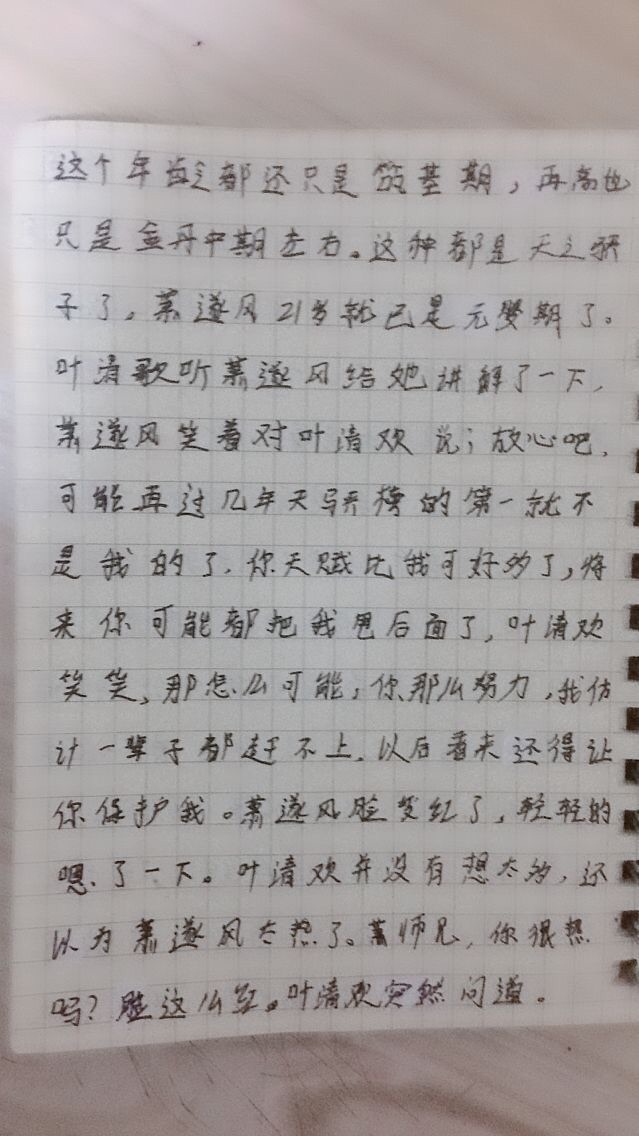 这个年龄都还只是筑基期，再高也
只是金丹中期左右。这种都是天之骄
子了，萧遂风21岁就已是元婴期了。
叶清歌听萧遂风给她讲解了一下，
萧遂风笑着对叶清欢说；放心吧，
可能再过几年天骄榜的第一就不
是我的了，你天赋比我可好多了，将
来你可能都把我甩后面了，叶清欢
笑笑，那怎么可能，你那么努力，我估
计一辈子都赶不上，以后看来还得让
你保护我。萧遂风脸发红了，轻轻的
嗯了一下。叶清欢并没有想太多，还
以为萧遂风太热了。萧师兄，你很热
吗？脸这么红。叶清欢突然问道。